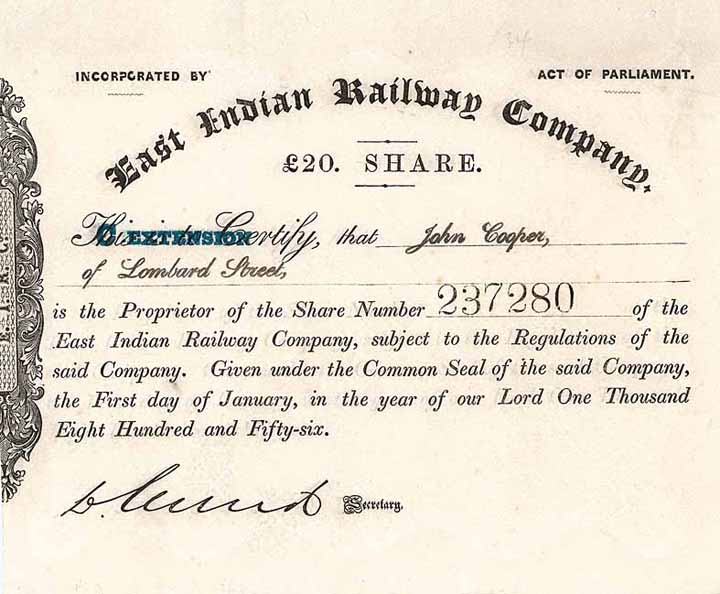 INCORPORATED BY ACT OF PARLIAMENT.
East Indian Railway Company.
£20. SHARE.
This is to Certify, that John Cooper,
C EXTENSION
of Lombard Street,
is the Proprietor of the Share Number 237280 of the
East Indian Railway Company, subject to the Regulations of the
said Company. Given under the Common Seal of the said Company,
the First day of January, in the year of our Lord One Thousand
Eight Hundred and Fifty-six.
Secretary.
E. I. R. C.